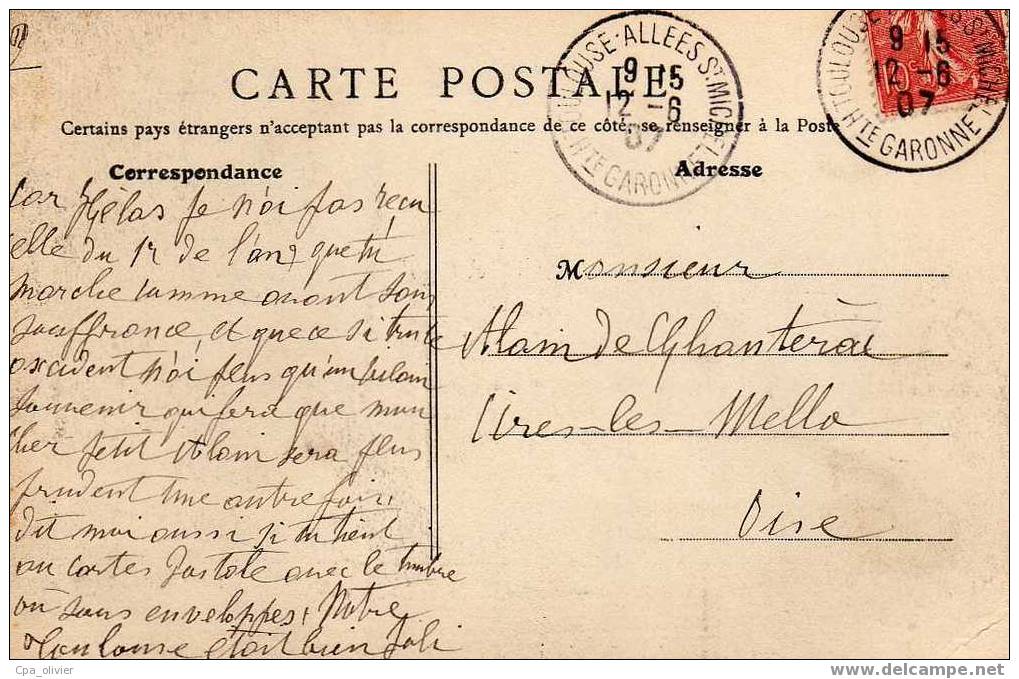 TOULOUSE-ALLEES ST MICHEL
9 15
12 -6
07
HTE GARONNE
TOULOUSE ST MICHEL
9 15
12 -6
07
HTE GARONNE
10c
CARTE POSTALE
Certains pays étrangers n'acceptant pas la correspondance de ce côté, se renseigner à la Poste
Correspondance
Adresse
Car Hélas Je n'ai pas reçu
elle du 1r de l'an, que tu
marche comme avant sans
souffrance, et que ce si triste
accident n'ai plus qu'un vilain
souvenir qui fera que mon
cher petit Alain sera plus
prudent une autre fois,
dit moi aussi si tu tient
au cartes Postale avec le timbre
ou sans enveloppes, Notre
Toulouse était bien Joli
Monsieur
Alain de Ghanterac
Cires-les-Mello
Oise
Cpa_olivier
www.delcampe.net